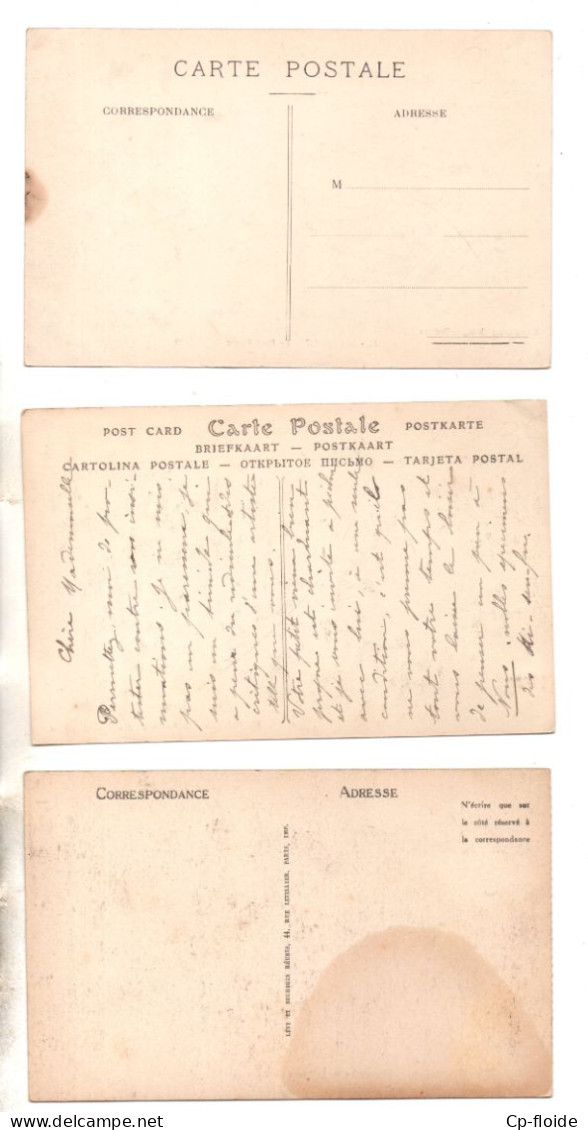 CARTE POSTALE
CORRESPONDANCE
ADRESSE
M
POST CARD Carte Postale POSTKARTE
BRIEFKAART — POSTKAART
CARTOLINA POSTALE — ОТКРЫТОЕ ПИСЬМО — TARJETA POSTAL
Chère Mademoiselle
Permettez moi de pro-
tester contre vos insi-
nuations je ne suis
pas un paresseux je
suis un timide qui
a peur des redoutables
critiques d'une artiste
telle que vous.
Votre petit
propre et charmant
et je vous invite à pêcher
avec lui, à une seule
condition, c'est qu'elle
ne vous prenne pas
tout votre temps et
vous laisse le loisir
de penser un peu à
Nous. milles
CORRESPONDANCE
ADRESSE
N'écrire que sur
le côté réservé à
la correspondance
LÉVY ET NEURDEIN RÉUNIS, 44, RUE LETELLIER, PARIS, IMP.
Cp-floide